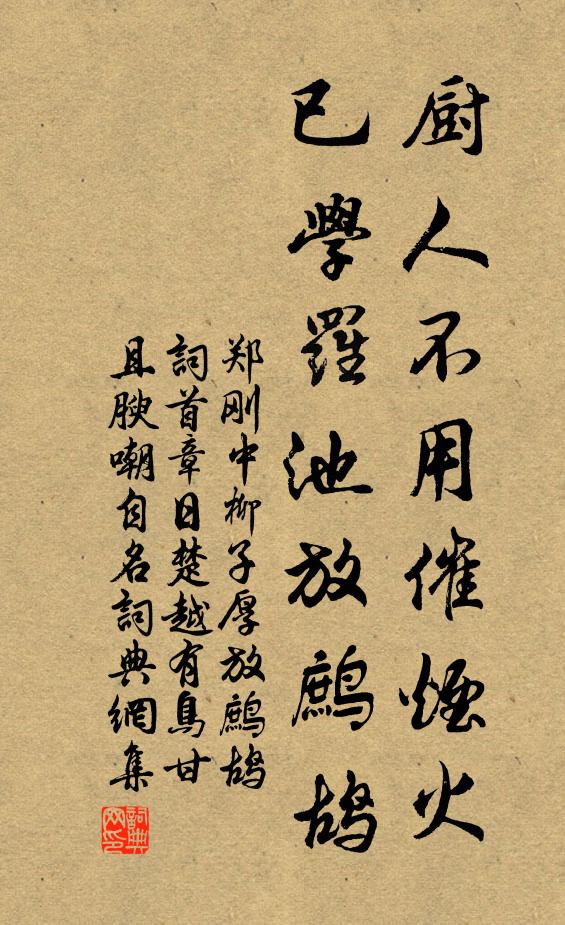 厨人不用催煙火
已學羅池放鷓鴣
郑刚中柳子厚放鷓鴣
詞首章曰楚越有鳥甘
且腴嘲自名詞典網集
詞典
网印